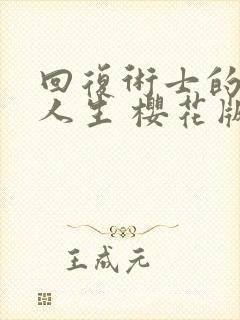 回復術士的
人生 櫻花版
王成元